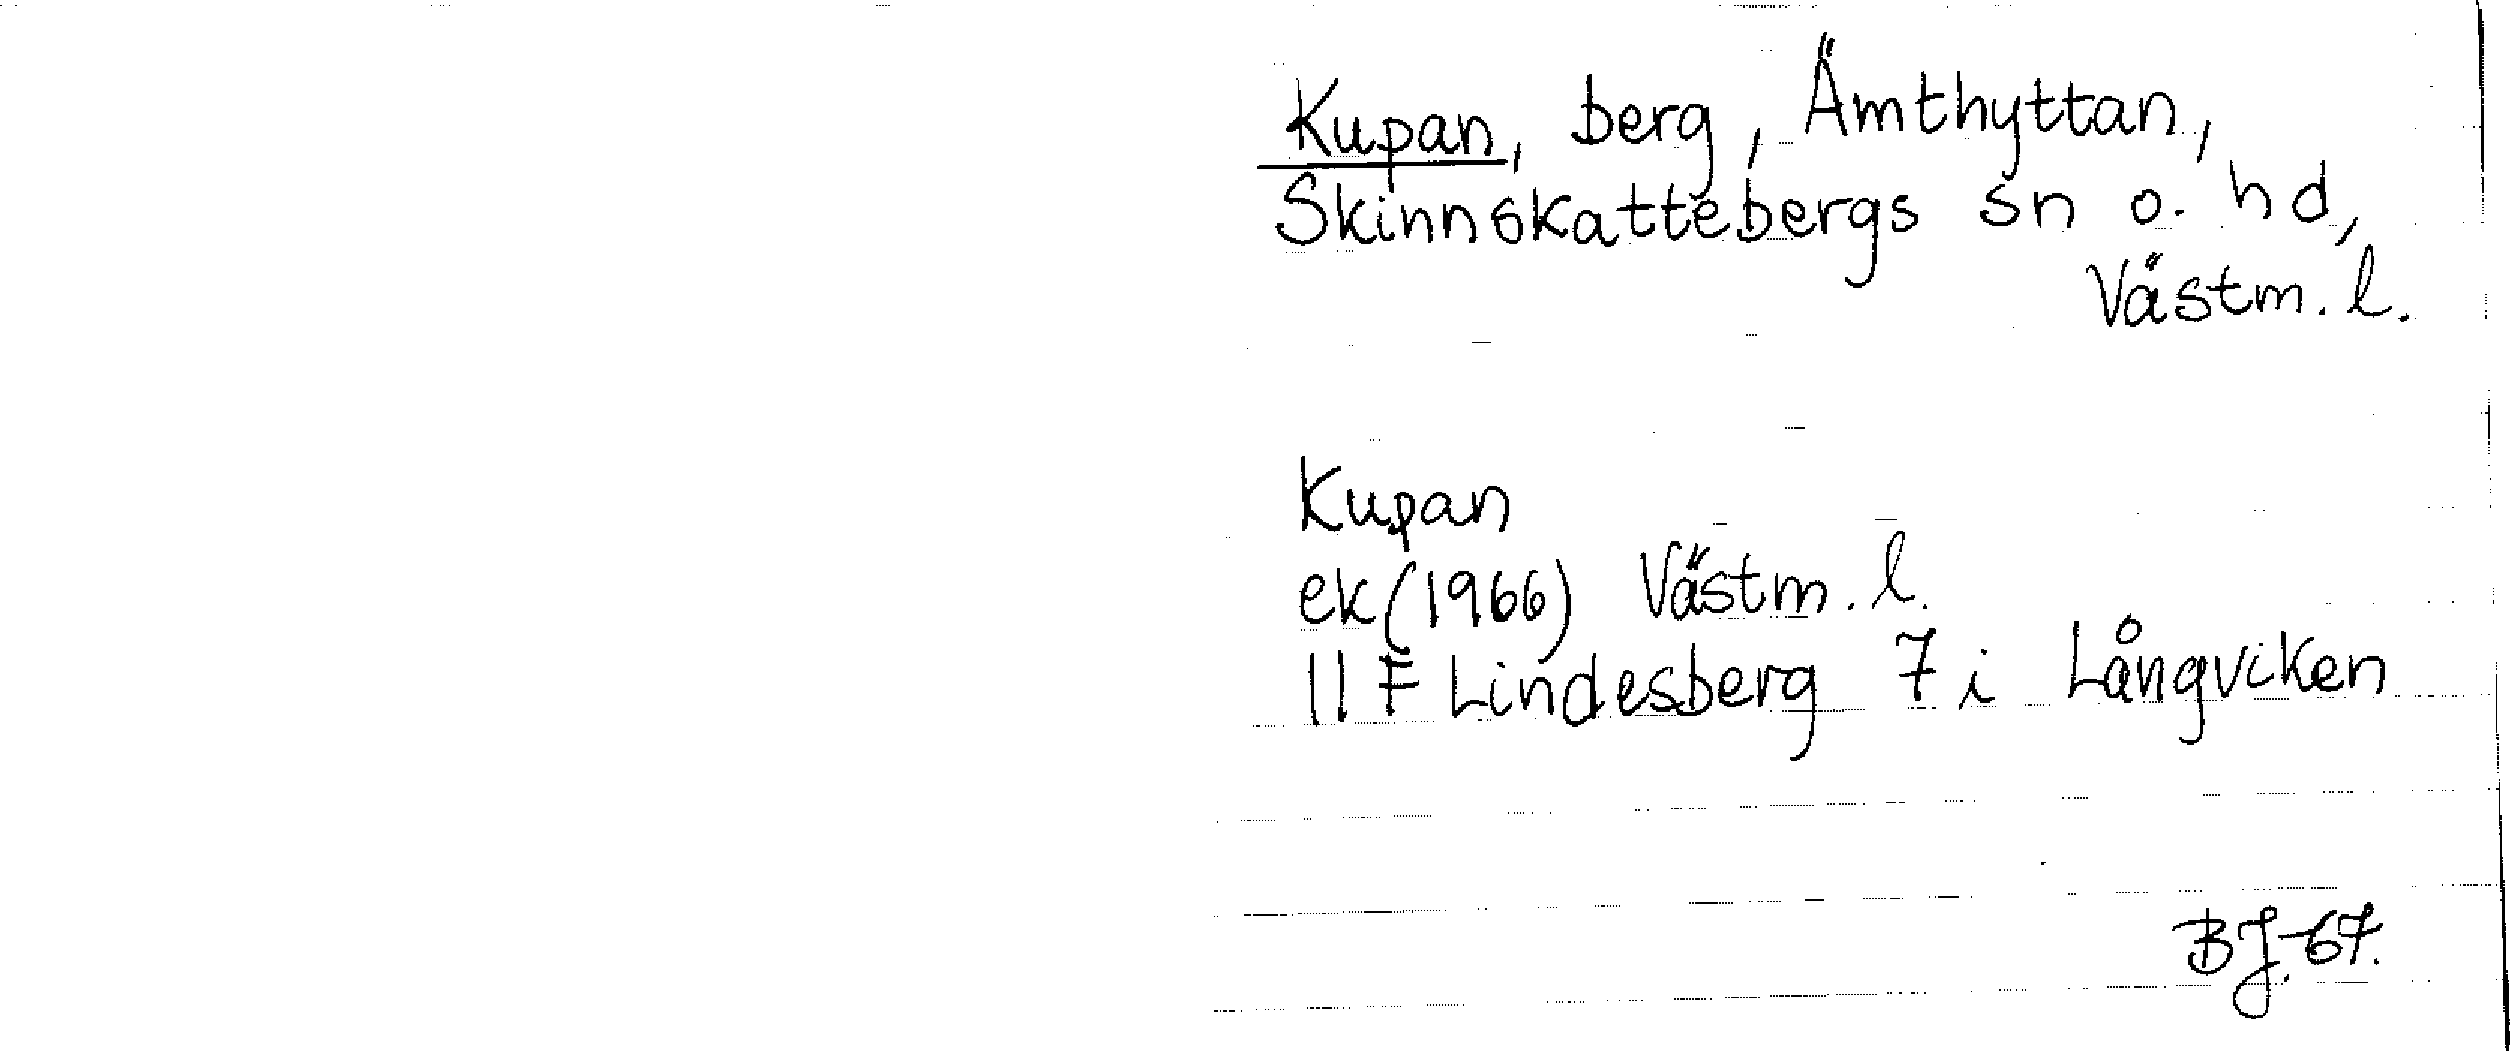 Kupan, berg, Ämthyttan,
Skinnskattebergs sn o. hd,
Västm. l.
Kupan
ek (1966) Västm. l.
11 F Lindesberg 7 i Långviken
BJ. 67.